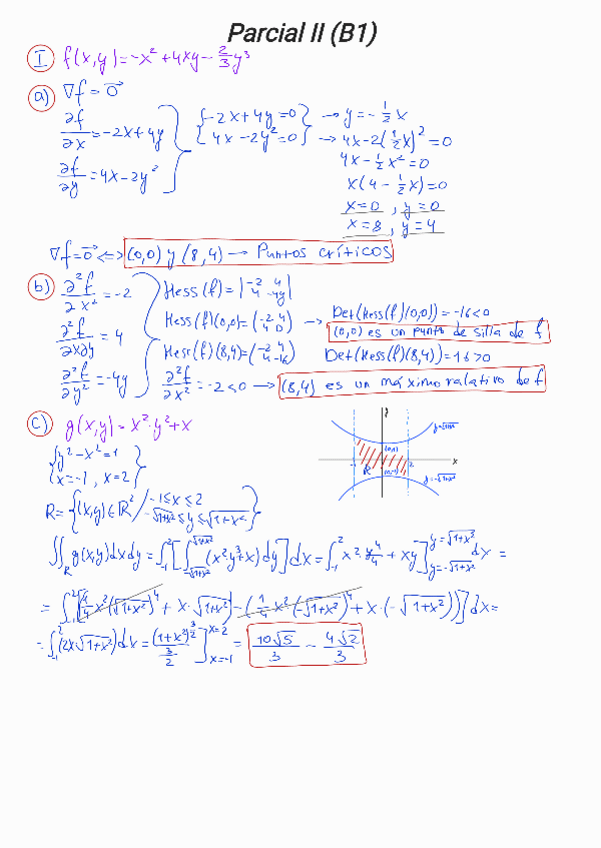 Parcial II (B1)
I f(x,y)=-x²+4xy-2/3y³
a) ∇f=0⃗
∂f/∂x=-2x+4y } {-2x+4y=0} → y=-1/2x
∂f/∂y=4x-2y² {4x-2y²=0} → 4x-2(1/2x)²=0
4x-1/2x²=0
x(4-1/2x)=0
x=0, y=0
x=8, y=4
∇f=0⃗ <=> (0,0) y (8,4) → Puntos críticos
b) ∂²f/∂x²=-2 Hess(f)=|-2 4 4 -4y|
∂²f/∂x∂y=4 Hess(f)(0,0)=(-2 4 4 0) → Det(Hess(f)(0,0))=-16<0
(0,0) es un punto de silla de f
Hess(f)(8,4)=(-2 4 4 -16) Det(Hess(f)(8,4))=16>0
∂²f/∂y²=-4y ∂²f/∂x²=-2<0 → (8,4) es un máximo ralativo de f
c) g(x,y)=x²·y³+x
{y²-x²=1
x=-1, x=2}
y
x
R
2
R={(x,y)∈ℝ²/-1≤x≤2
-√1+x²≤y≤√1+x²}
∬_R g(x,y)dxdy=∫_-1^2[∫_-√1+x²^√1+x²(x²y³+x)dy]dx=∫_-1^2 x²·y⁴/4+xy]_y=-√1+x²^y=√1+x² dx=
=∫_-1^2[1/4x²(√1+x²)⁴+x·√1+x²-(1/4x²(-√1+x²)⁴+x·(-√1+x²))]dx=
=∫_-1^2(2x√1+x²)dx=(1+x²)^3/2/3/2]_x=-1^x=2=10√5/3-4√2/3